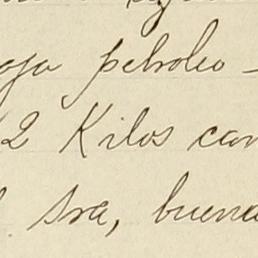 petroleo -
2 Kilos can
Sra, buena